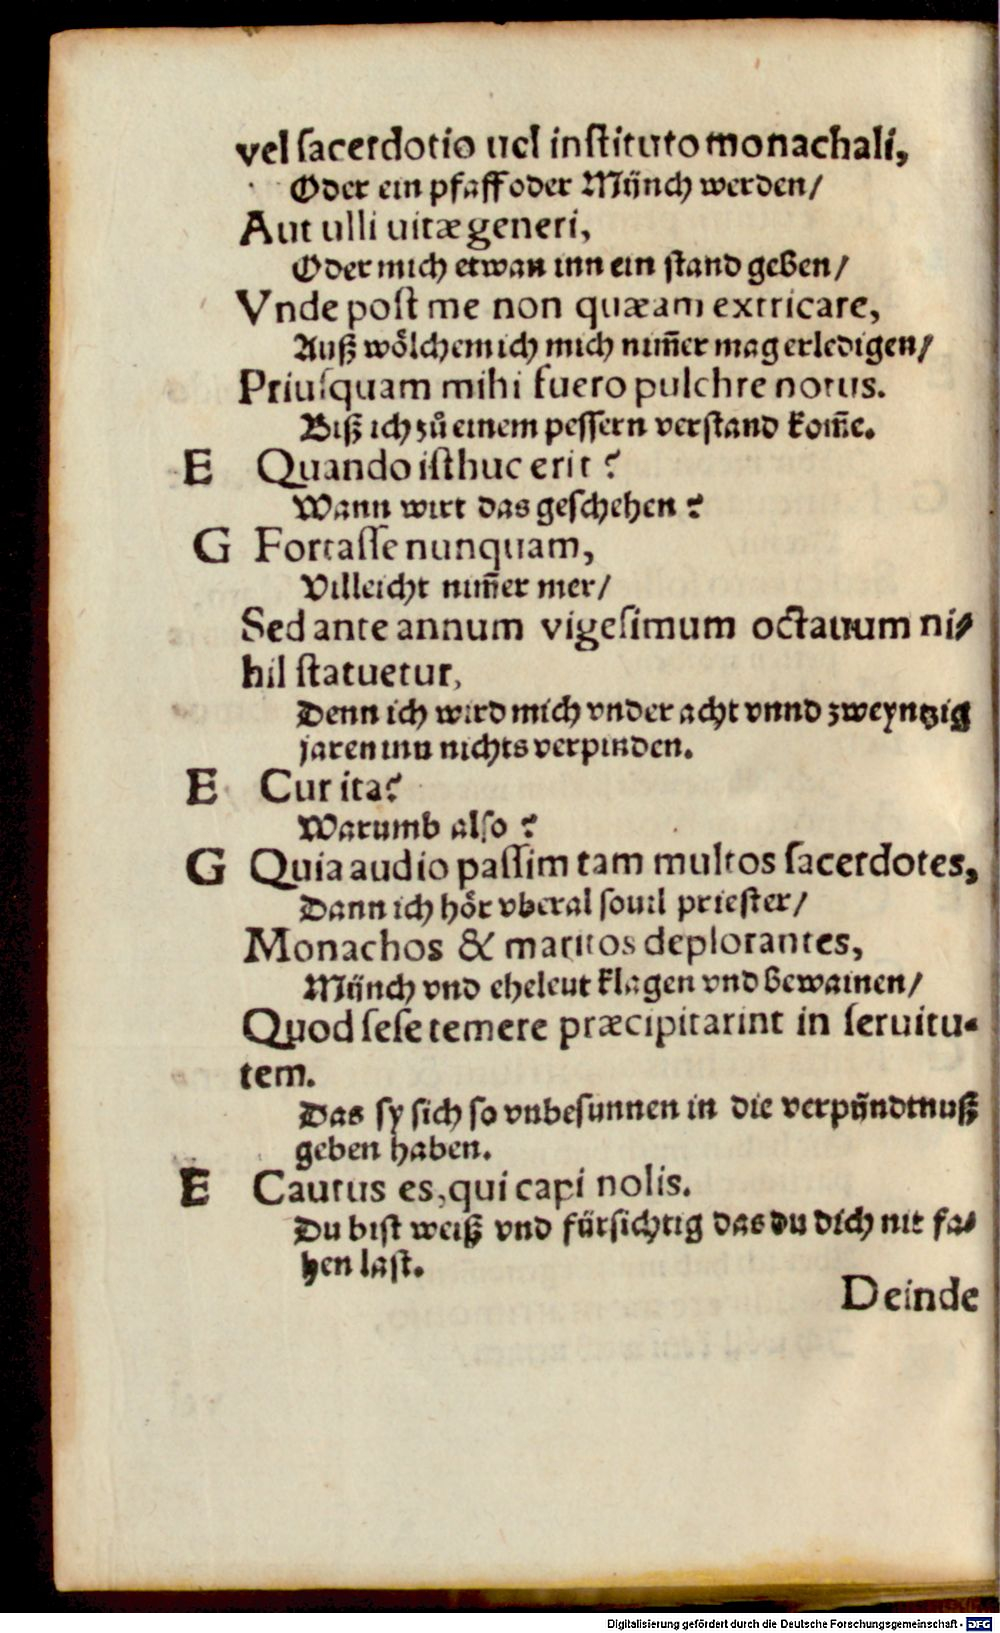 vel ſacerdotio uel inſtituto monachali,
Oder ein pfaff oder Münch werden/
Aut ulli uitæ generi,
Oder mich etwan inn ein ſtand geben/
Vnde poſt me non quæam extricare,
Auß wölchem ich mich nim̃er mag erledigen/
Priuſquam mihi fuero pulchre notus.
Biß ich zů einem peſſern verſtand kom̃e.
E Quando iſthuc erit?
Wann wirt das geſchehen?
G Fortaſſe nunquam,
Villeicht nim̃er mer/
Sed ante annum vigeſimum octauum ni⸗
hil ſtatuetur,
Denn ich wird mich vnder acht vnnd zweyntzig
jaren inn nichts verpinden.
E Cur ita?
Warumb alſo?
G Quia audio paſſim tam multos ſacerdotes,
Dann ich hör vberal ſouil prieſter/
Monachos & maritos deplorantes,
Münch vnd eheleut klagen vnd bewainen/
Quod ſeſe temere præcipitarint in ſeruitu⸗
tem.
Das ſy ſich ſo vnbeſunnen in die verpündtnuß
geben haben.
E Cautus es, qui capi nolis.
Du biſt weiß vnd fürſichtig das du dich nit fa⸗
hen laſt.
Deinde
Digitalisierung gefördert durch die Deutsche Forschungsgemeinschaft - DFG